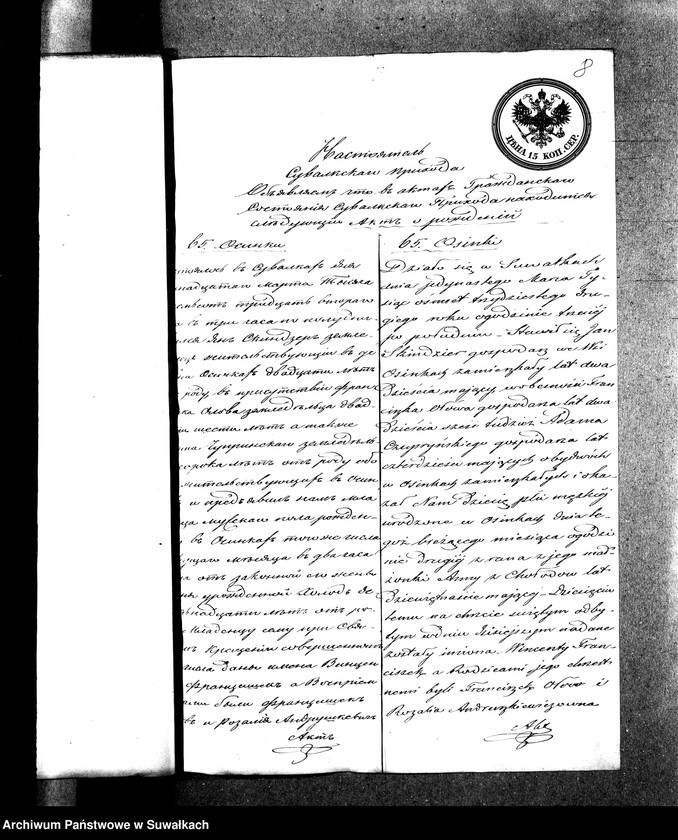 8
ЦѢНА 15 КОП. СЕР.
Настоятель
Сувалкскаго прихода
Объявляемъ что въ актахъ Гражданскаго
Состоянія Сувалкскаго Прихода находится
слѣдующій Актъ о рожденіи
65. Осинки
въ Сувалкахъ дня
надцатаго Марта Тысяча
тридцать втораго
въ три часа по полудни
Янъ Скиндзеръ земле
жительствующій въ де
Осинкахъ двадцати лѣтъ
роду, въ присутствіи Фран
Олова земледѣльца двад
шести лѣтъ а также
Чупринскаго земледѣль
сорока лѣтъ отъ роду обо
жительствующихъ въ Осин
и предъявилъ намъ мла
мужескаго пола рожден
въ Осинкахъ того же числа
мѣсяца въ два часа
отъ законной его жены
урожденной Холодъ де
надцати лѣтъ отъ ро
Младенцу сему при Свя
Крещеніи совершенномъ
даны имена Винцен
Францишекъ а Воспріем
были Францишекъ
и Розалія Андрушкевичъ
Актъ
65. Osinki
Działo się w Suwałkach
dnia jedynastego Marca Ty-
siąc osmset trzydziestego Dru-
giego roku ogodzinie trzeciej
po południu – Stawił się Jan
Skindzier gospodarz we Wsi
Osinkach zamieszkały lat dwa
dzieścia mający w obecności Fran
ciszka Olowa gospodarza lat dwa
dzieścia sześć tudzież Adama
Czupryńskiego gospodarza lat
czterdzieści mających obydwóch
w Osinkach zamieszkałych i oka
zał Nam dziecię płci męzkiej
urodzone w Osinkach dnia te-
goż bieżącego miesiąca ogodzi
nie drugiej z rana z jego mał
żonki Anny z Chołodow lat
dziewiętnaście mającej – Dziecięciu
temu na chrzcie świętym odby-
tym w dniu dzisiejszym nadane
zostały imiona Wincenty Fran-
ciszek, a Rodzicami jego chrzest-
nemi byli Franciszek Olowo i
Rozalia Andruszkiewiczowna
Akt
Archiwum Państwowe w Suwałkach